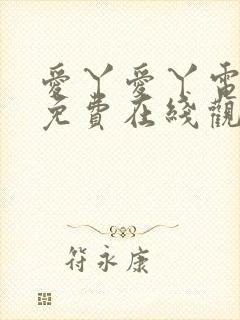 愛丫愛丫電
免費在綫觀
符永康